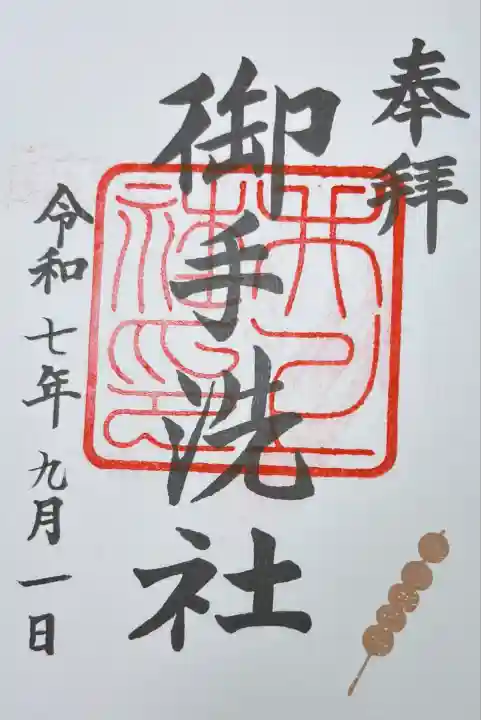 奉拝
御手洗社
令和七年九月一日